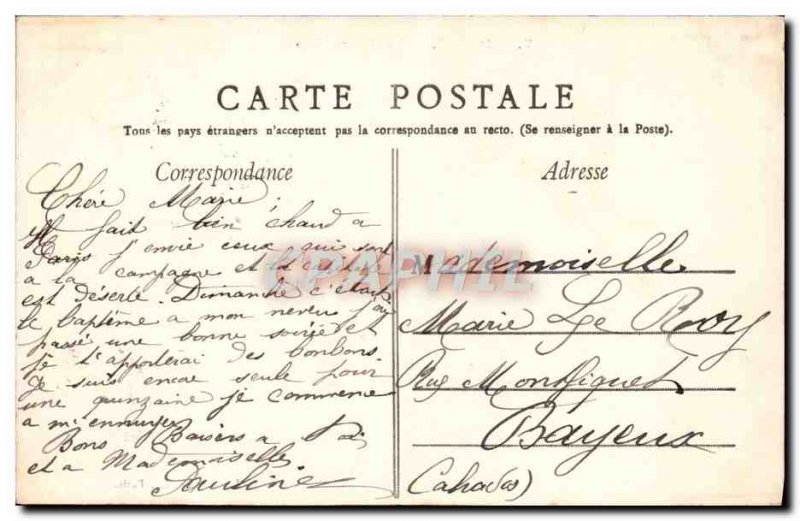 CARTE POSTALE
Tous les pays étrangers n'acceptent pas la correspondance au recto. (Se renseigner à la Poste).
Correspondance
Chéré Marie,
Il fait bien chaud a
Paris j'envie ceux qui sont
a la campagne et
est déserte. Dimanche c'était
le baptême a mon neveu j'ai
passé une bonne soirée et
je t'apporterai des bonbons.
Je suis encore seule pour
une quinzaine je commence
a m'ennuyer
Bons Baisers a Toi
et a Mademoiselle
Pauline
Adresse
Mademoiselle
Marie Le Roy
Rue Montfiquet
Bayeux
Calvados)
CPAPHIL